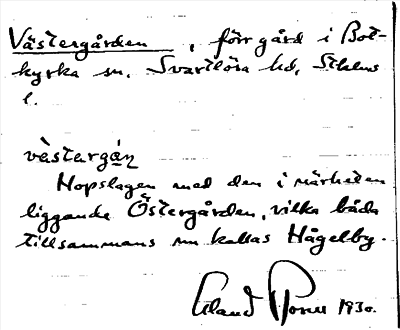 Västergården, förr gård i Bot-
kyrka sn, Svartlösa hd, Sthlms
l.
västergán
Hopslagen med den i närheten
liggande Östergården, vilka båda
tillsammans nu kallas Hågelby.
Erland 1930.